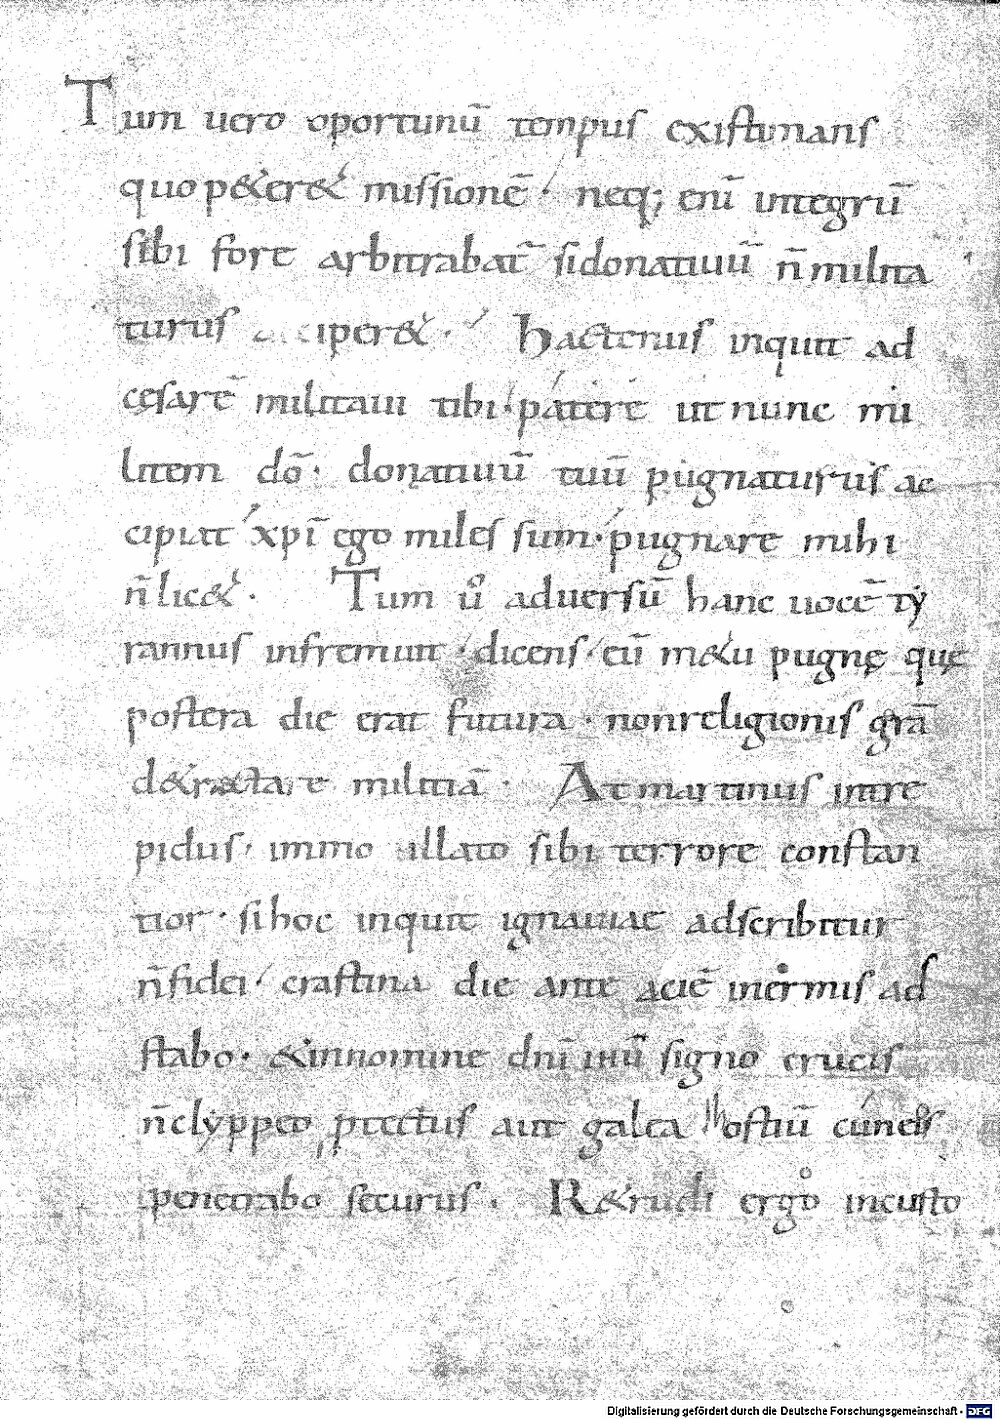 Tum uero oportunū tempus existimans
quo p&er& missionē · neq; enī integrū
sibi fore arbitrabat̄ si donatiuū n̄ milita
turus acciper& · Hactenus inquit ad
cęsarē militaui tibi · patere ut nunc mi
litem dō · donatiuū tuū pugnaturus ac
cipiat xp̄i ego miles sum · pugnare mihi
n̄ lic& · Tum uͦ aduersū hanc uocē ty
rannus infremuit · dicens / eū m&u pugnę quę
postera die erat futura · non religionis grā
d&ractare militiā · At martinus intre
pidus · immo illato sibi terrore constan
tior · si hoc inquit ignauiae adscribitur
n̄ fidei / crastina die ante aciē inermis ad
stabo · & in nomine dnī ihū signo crucis
n̄ clyppeo ptectus aut galea hostiū cuneos
penetrabo securus · R&rudi ergo in custo
Digitalisierung gefördert durch die Deutsche Forschungsgemeinschaft - DFG